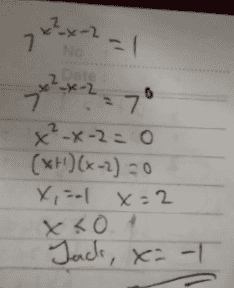 7^{x²-x-2} = 1
No
Date
7^{x²-x-2} = 7⁰
x²-x-2 = 0
(x+1)(x-2) = 0
x₁ = -1 x = 2
x ≤ 0
Jadi, x = -1